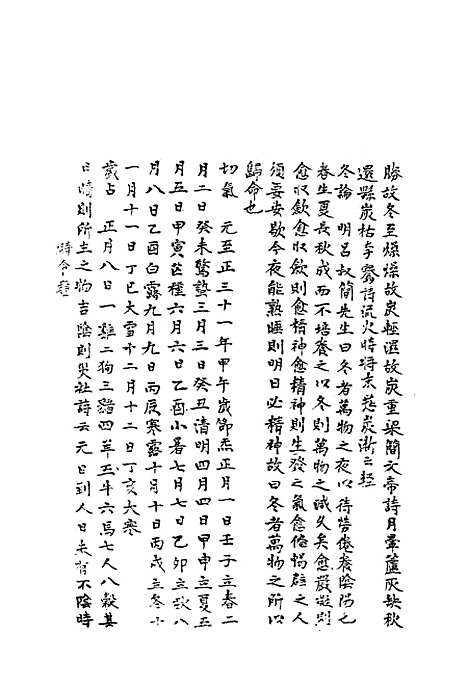 勝故冬至燥燥故炭輕濕故炭重梁簡文帝詩月暈蘆灰缺秋
還縣炭枯李嶠詩流火時將末懸炭漸云輕
冬論　明呂叔簡先生曰冬者萬物之夜以待勞倦養陰陽也
春生夏長秋成而不培養之以冬則萬物之滅久矣愈嚴凝則
愈收歛愈收歛則愈精神愈精神則生發之氣愈條暢譬之人
須要安歇今夜能熟睡則明日必精神故曰冬者萬物之所以
歸命也
切氣　元至正三十一年甲午歲節炁正月一日壬子立春二
月二日癸未驚蟄三月三日癸丑清明四月四日甲申立夏五
月五日甲寅芒種六月六日乙酉小暑七月七日乙卯立秋八
月八日乙酉白露九月九日丙辰寒露十月十日丙戌立冬十
一月十一日丁巳大雪十二月十二日丁亥大寒
歲占　正月八日一雞二狗三豬四羊五牛六馬七人八穀其
日晴則所主之物吉陰則災杜詩云元日到人日未有不陰時
時令